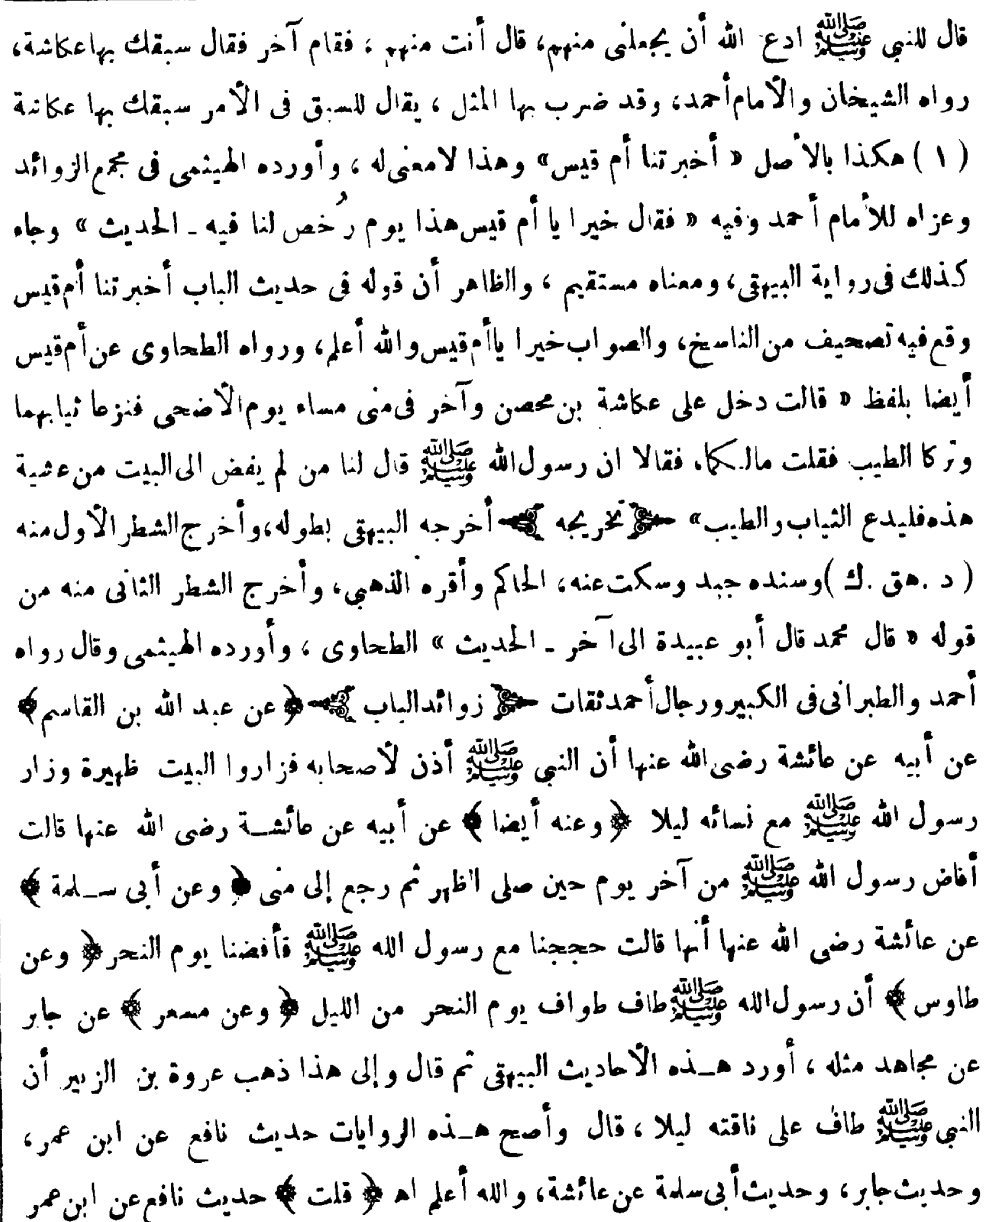 قال للنبي ﷺ ادع الله أن يجعلنى منهم، قال أنت منهم ، فقام آخر فقال سبقك بها عكاشة،
رواه الشيخان والأمام أحمد، وقد ضرب بها المثل ، يقال للسبق فى الأمر سبقك بها عكاشة
( ١ ) هكذا بالأصل « أخبرتنا أم قيس» وهذا لامعنى له ، وأورده الهيثمى فى مجمع الزوائد
وعزاه للأمام أحمد وفيه « فقال خيرا يا أم قيس هذا يوم رُخص لنا فيه ـ الحديث » وجاء
كذلك فى رواية البيهقى، ومعناه مستقيم ، والظاهر أن قوله فى حديث الباب أخبرتنا أم قيس
وقع فيه تصحيف من الناسخ، والصواب خيرا يا أم قيس والله أعلم، ورواه الطحاوى عن أم قيس
أيضا بلفظ « قالت دخل على عكاشة بن محصن وآخر فى منى مساء يوم الأضحى فنزعا ثيابهما
وتركا الطيب فقلت مالكما، فقالا ان رسول الله ﷺ قال لنا من لم يفض الى البيت من عشية
هذه فليدع الثياب والطيب» ﴿ تخريجه ﴾ أخرجه البيهقى بطوله، وأخرج الشطر الأول منه
( د . هق . ك ) وسنده جيد وسكت عنه، الحاكم وأقره الذهبى، وأخرج الشطر الثانى منه من
قوله « قال محمد قال أبو عبيدة الى آخر ـ الحديث » الطحاوى ، وأورده الهيثمى وقال رواه
أحمد والطبرانى فى الكبير ورجال أحمد ثقات ﴿ زوائد الباب ﴾ ﴿ عن عبد الله بن القاسم ﴾
عن أبيه عن عائشة رضى الله عنها أن النبي ﷺ أذن لأصحابه فزاروا البيت ظهيرة وزار
رسول الله ﷺ مع نسائه ليلا ﴿ وعنه أيضا ﴾ عن أبيه عن عائشة رضى الله عنها قالت
أفاض رسول الله ﷺ من آخر يوم حين صلى الظهر ثم رجع إلى منى ﴿ وعن أبى سلمة ﴾
عن عائشة رضى الله عنها أنها قالت حججنا مع رسول الله ﷺ فأفضنا يوم النحر ﴿ وعن
طاوس ﴾ أن رسول الله ﷺ طاف طواف يوم النحر من الليل ﴿ وعن مسعر ﴾ عن جابر
عن مجاهد مثله ، أورد هذه الأحاديث البيهقى ثم قال وإلى هذا ذهب عروة بن الزبير أن
النبي ﷺ طاف على ناقته ليلا ، قال وأصح هذه الروايات حديث نافع عن ابن عمر،
وحديث جابر، وحديث أبى سلمة عن عائشة، والله أعلم اه ﴿ قلت ﴾ حديث نافع عن ابن عمر